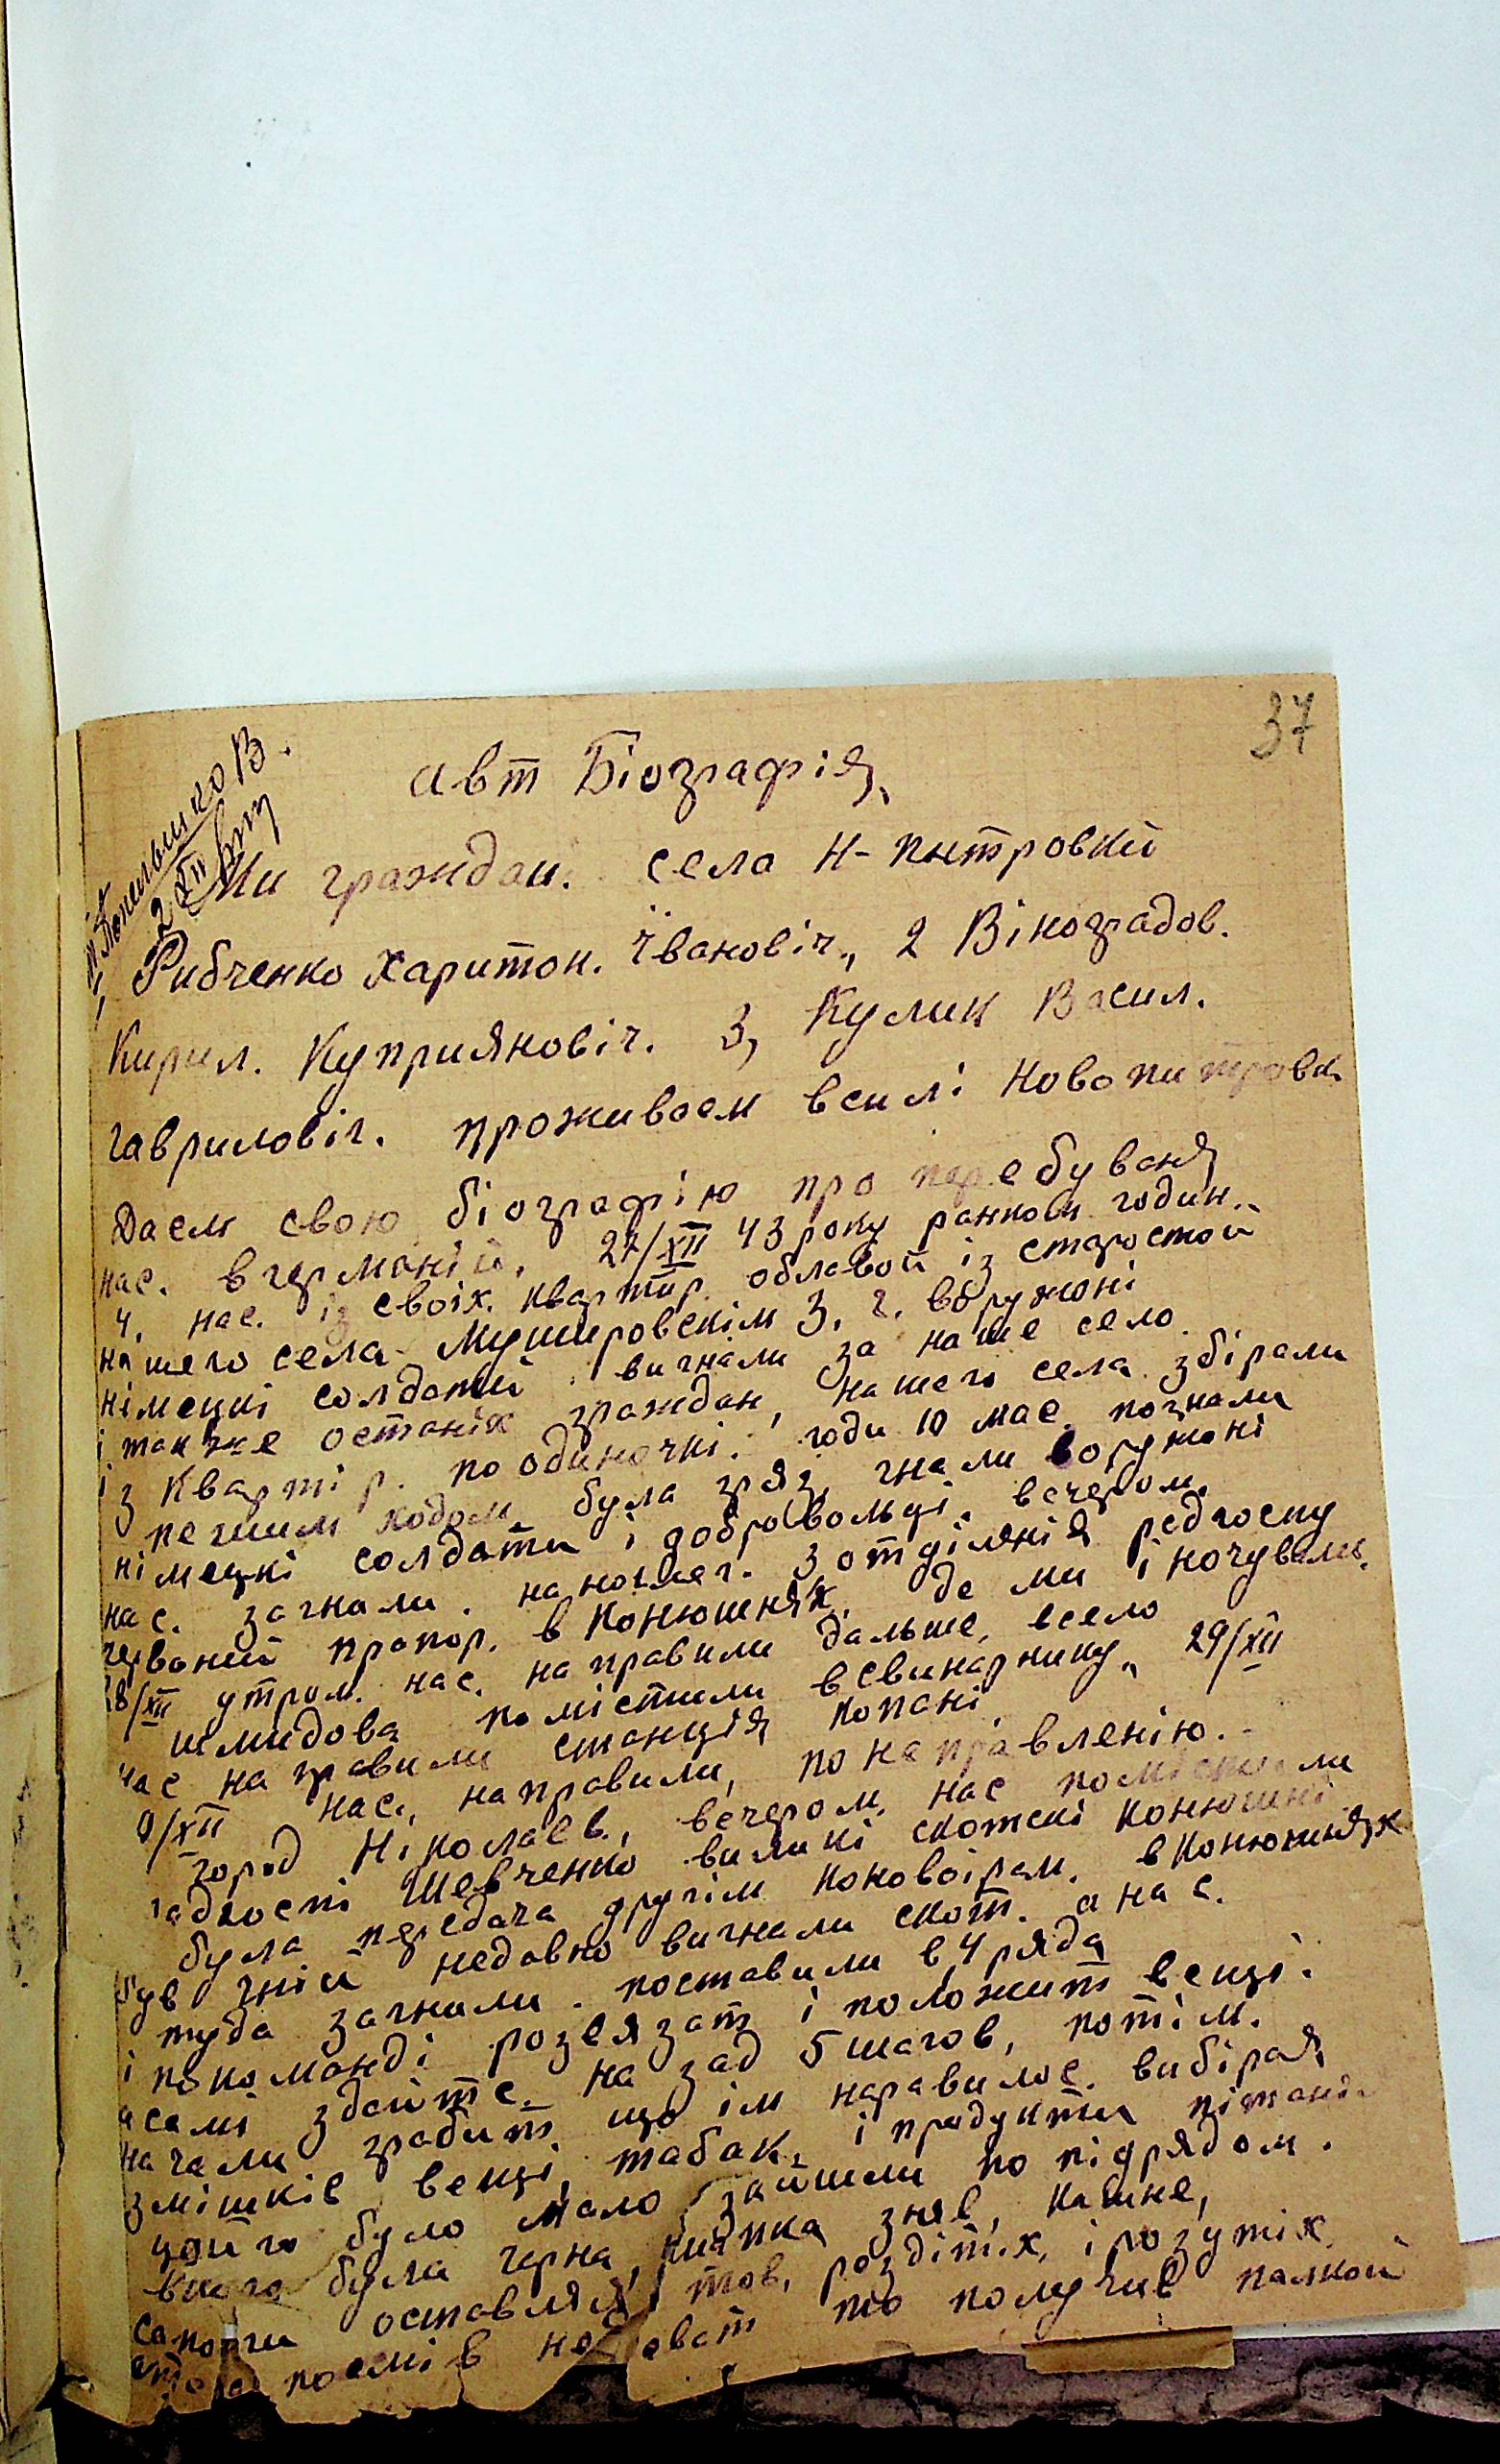 37
авт Біографія,
Ми граждан. села Н-питровкй
1, Рибченко Харитон. Ївановіч., 2 Віноградов.
Кирил. Куприяновіч. 3, Кулик Васил.
Гавриловіч. проживаем всилі Новопитровк
Даем свою біографію про перебуваня
нас. вгермонїй, 27/XII 43 року ранком годин..
4, нас. із своіх. квартир. облавой із старостой
нашего села Мушировскім З, г. воружоні
німецкі солдатй вигнали за наше село.
і также останіх граждан, нашего села збірали
із Квартір. по одиночкі. годи 10 мас. погнали
пешим ходом. була гряз, гнали воружоні
німецкі солдати і добровольці. вечером,
нас. загнали. наношег. 3 отділянія редгоспу
червоний прапор. в конюшнях, де ми і ночували.
28/XII утром. нас. направили дальше, всело
шмидова помістили всвинарнику, 29/XII
нас направили станція копані,
0/XII нас., направили, понаправленію. -
город Ніколаев., вечером, нас помістили
радгоспі Шевченко виликі скотскі конюшні
була передача другім коновоірам. вконюшнях
був гній недавно вигнали скот. а нас.
туда загнали. поставили в 4 ряда
і покоманді розвязат і положит вещі.
асамі здайте, на зад 5 шагов, потім.
начали грабит що ім наравилос. вибірая
змішків вещі, табак, і продукти пітаня
цього було мало зайшли по підрядом.
вкого була гарна, кипка зняв, кашне,
сапоги оставляя тов, роздітіх, і розутіх,
посмів не дават то получив палкой